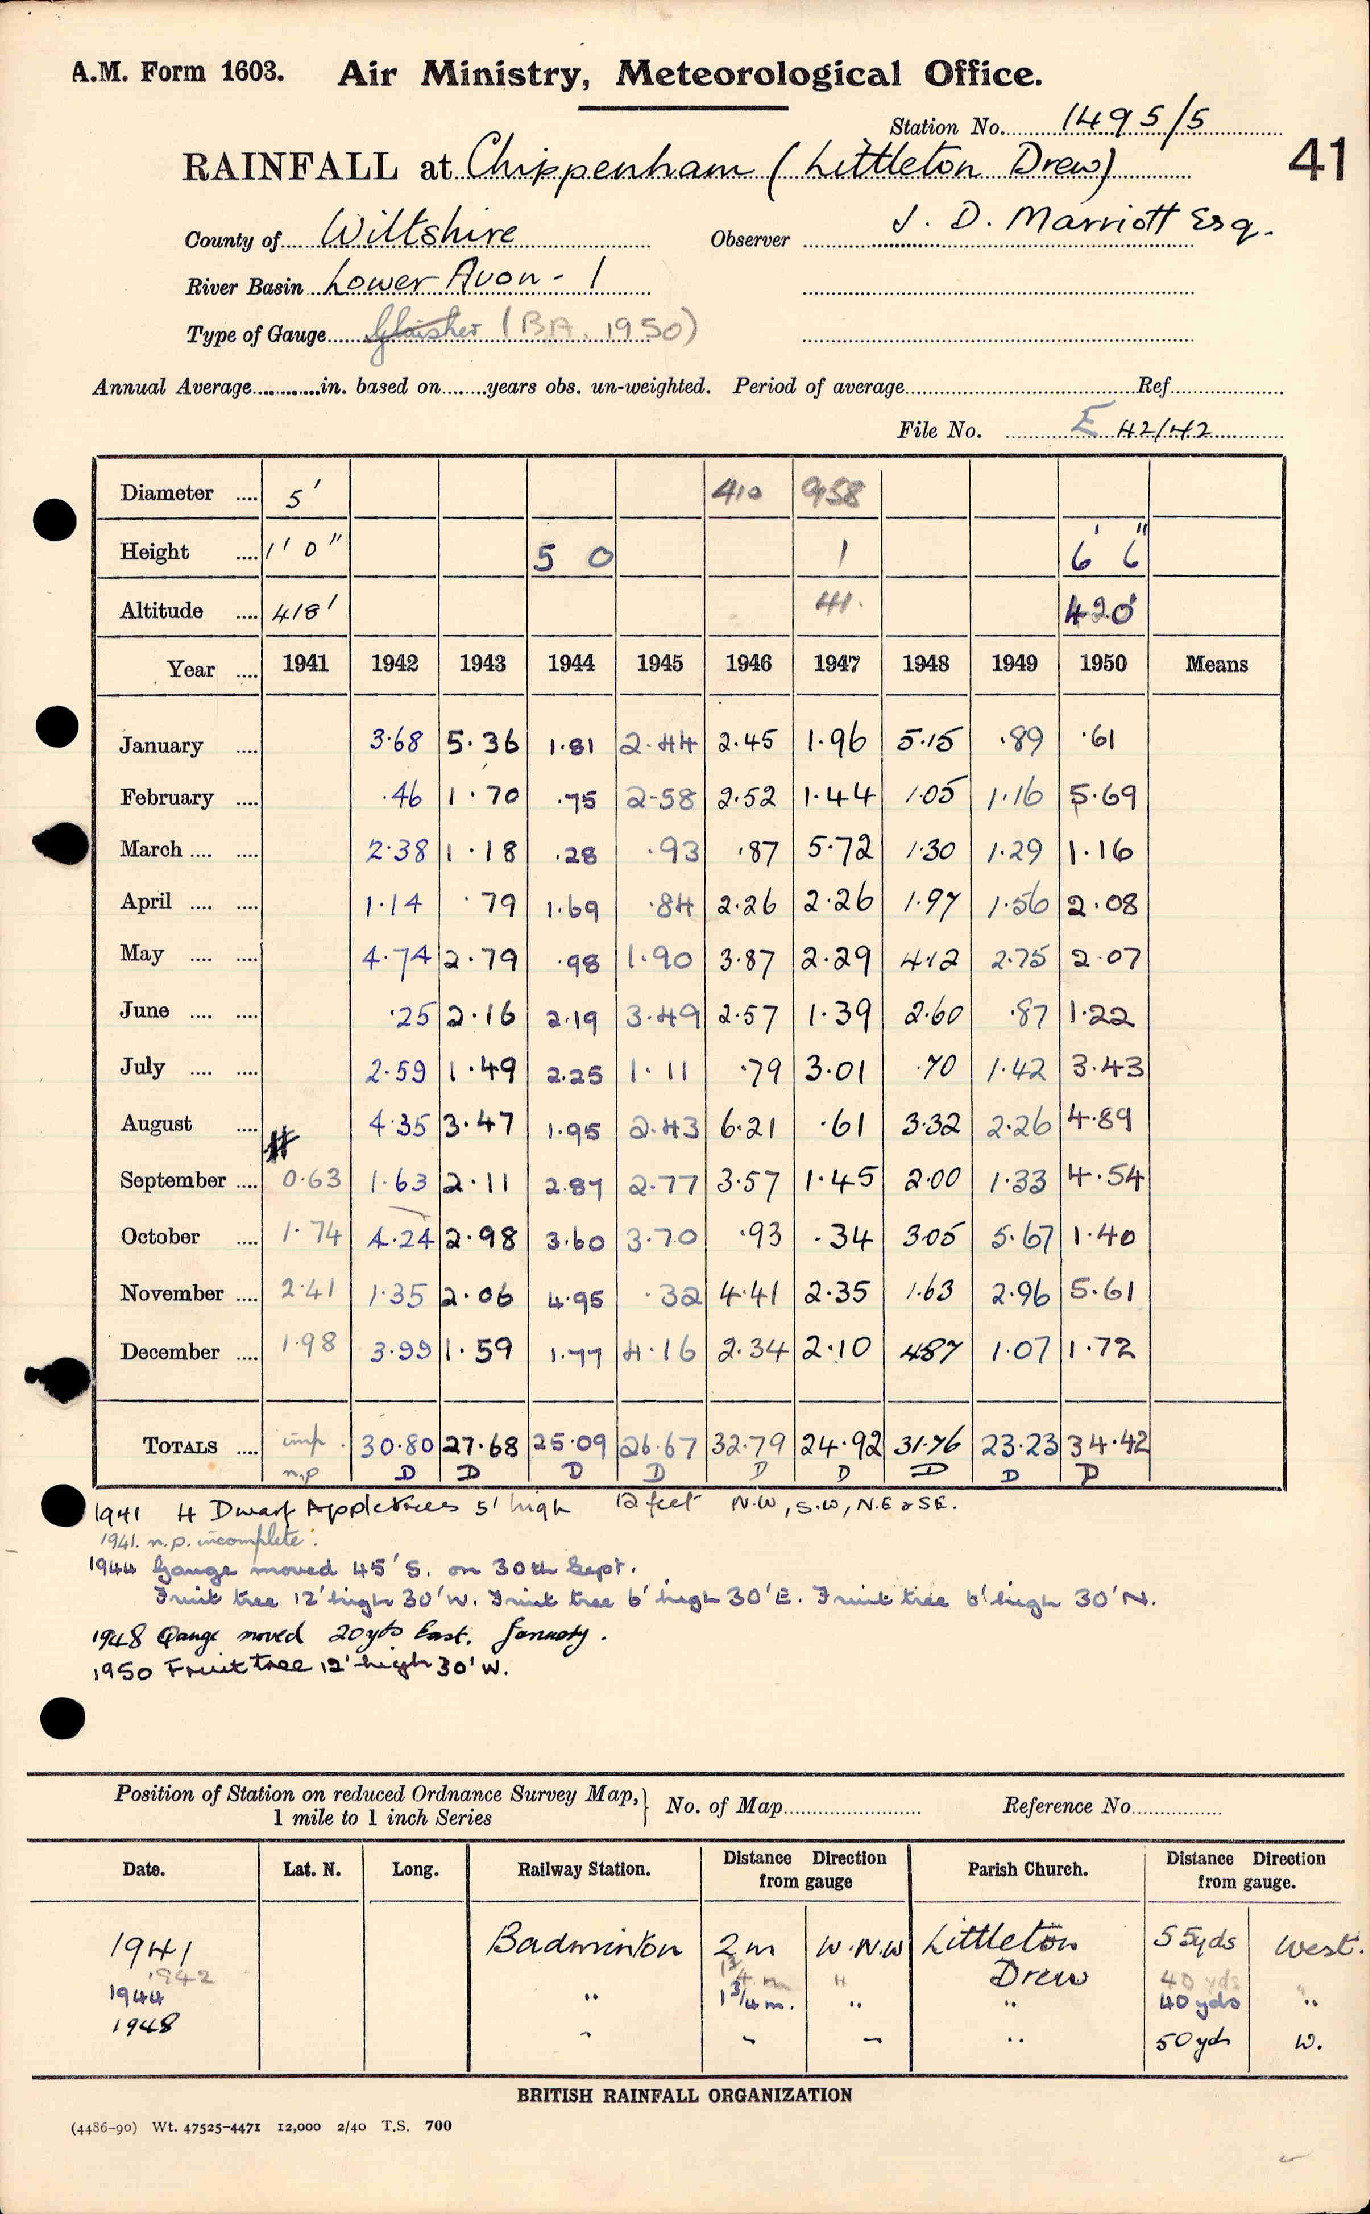 A.M. Form 1603. Air Ministry, Meteorological Office.
Station No. 1495/5
41
RAINFALL at Chippenham (Littleton Drew)
County of Wiltshire Observer J. D. Marriott Esq.
River Basin Lower Avon - 1
Type of Gauge Glaisher (BA. 1950)
Annual Average ............in. based on.......years obs. un-weighted. Period of average.......... Ref..........
File No. E 42/42
Diameter .... 5' 410 958
Height .... 1' 0" 5 0 1 6' 6"
Altitude .... 418' 41. 420'
Year .... 1941 1942 1943 1944 1945 1946 1947 1948 1949 1950 Means
January .... 3·68 5·36 1·81 2·44 2·45 1·96 5·15 ·89 ·61
February .... ·46 1·70 ·75 2·58 2·52 1·44 1·05 1·16 5·69
March .... .... 2·38 1·18 ·28 ·93 ·87 5·72 1·30 1·29 1·16
April .... .... 1·14 ·79 1·69 ·84 2·26 2·26 1·97 1·56 2·08
May .... .... 4·74 2·79 ·98 1·90 3·87 2·29 4·12 2·75 2·07
June .... .... ·25 2·16 2·19 3·49 2·57 1·39 2·60 ·87 1·22
July .... .... 2·59 1·49 2·25 1·11 ·79 3·01 ·70 1·42 3·43
August .... # 4·35 3·47 1·95 2·43 6·21 ·61 3·32 2·26 4·89
September .... 0·63 1·63 2·11 2·87 2·77 3·57 1·45 2·00 1·33 4·54
October .... 1·74 4·24 2·98 3·60 3·70 ·93 ·34 3·05 5·67 1·40
November .... 2·41 1·35 2·06 4·95 ·32 4·41 2·35 1·63 2·96 5·61
December .... 1·98 3·99 1·59 1·77 4·16 2·34 2·10 4·87 1·07 1·72
TOTALS .... imp. 30·80 27·68 25·09 26·67 32·79 24·92 31·76 23·23 34·42
n.p D D D D D D D D D
1941 4 Dwarf Appletrees 5' high 12 feet N.W, S.W, N.E & SE.
1941. n.p. incomplete.
1944 Gauge moved 45' S. on 30th Sept.
Fruit tree 12' high 30' W. Fruit tree 6' high 30' E. Fruit tree 6' high 30' N.
1948 Gauge moved 20yds East. January.
1950 Fruit tree 12' high 30' W.
Position of Station on reduced Ordnance Survey Map, 1 mile to 1 inch Series } No. of Map.......... Reference No..........
Date. Lat. N. Long. Railway Station. Distance Direction from gauge Parish Church. Distance Direction from gauge.
1941 Badminton 2 m W.N.W Littleton Drew 55yds West.
1942 1¾ m " 40 yds "
1944 " 1¾ m. " " 40 yds "
1948 " " " " 50 yds W.
BRITISH RAINFALL ORGANIZATION
(4486-90) Wt. 47525-4471 12,000 2/40 T.S. 700